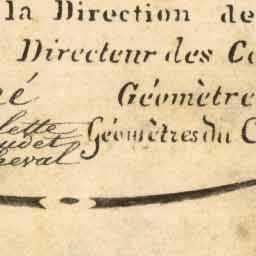 la Direction de
Directeur des Co
é Géomètre
lette
udet Géomètres du C
heval